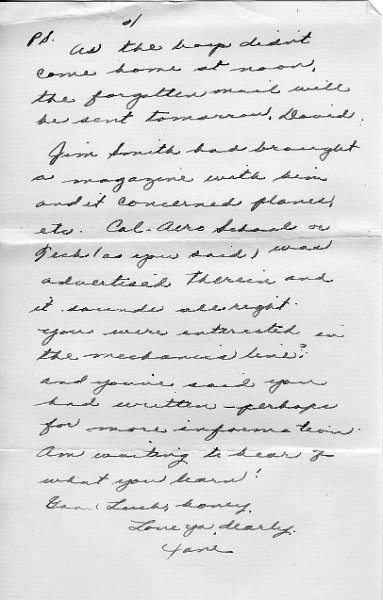 P.S.
As the boys didn't
come home at noon,
the forgotten mail will
be sent tomorrow, David.
Jim Smith had brought
a magazine with him
and it concerned planes,
etc. Cal-Aero School or
Tech (as you said) was
advertised therein and
it sounds all right.
You were interested in
the mechanics line?
and you've said you
had written - perhaps
for more information.
Am waiting to hear of
what you learn!
Luck, honey.
Love ya, dearly,
Jane